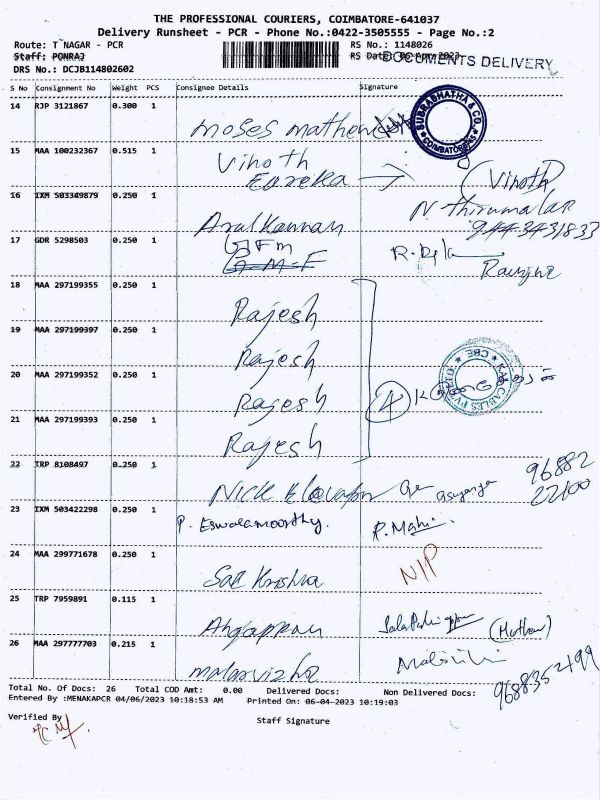 THE PROFESSIONAL COURIERS, COIMBATORE-641037
Delivery Runsheet - PCR - Phone No.:0422-3505555 - Page No.:2
Route: T NAGAR - PCR RS No.: 1148026
Staff: PONRAJ RS Date: 06 Apr 2023
DOCUMENTS DELIVERY
DRS No.: DCJB114802602
S No Consignment No Weight PCS Consignee Details Signature
14 RJP 3121867 0.300 1
moses mathew
SUBRABHATHA & CO. COIMBATORE
15 MAA 100232367 0.515 1
Vinoth
Eureka (Vinoth)
16 IXM 503349879 0.250 1
Arulkannan N. Thirumalai
17 GDR 5298503 0.250 1
GFM
Ranjine
18 MAA 297199355 0.250 1
Rajesh
19 MAA 297199397 0.250 1
Rajesh
20 MAA 297199352 0.250 1
Rajesh 4
CABLES CBE
21 MAA 297199393 0.250 1
Rajesh
22 TRP 8108497 0.250 1
Nick 96882
22100
23 IXM 503422298 0.250 1
P. Eswaramoorthy. P. Mahi.
24 MAA 299771678 0.250 1
Sai Krishna N/P
25 TRP 7959891 0.115 1
Alagappan
26 MAA 297777703 0.215 1
malarvizhi
Total No. Of Docs: 26 Total COD Amt: 0.00 Delivered Docs: Non Delivered Docs:
Entered By :MENAKAPCR 04/06/2023 10:18:53 AM Printed On: 06-04-2023 10:19:03
Verified By Staff Signature